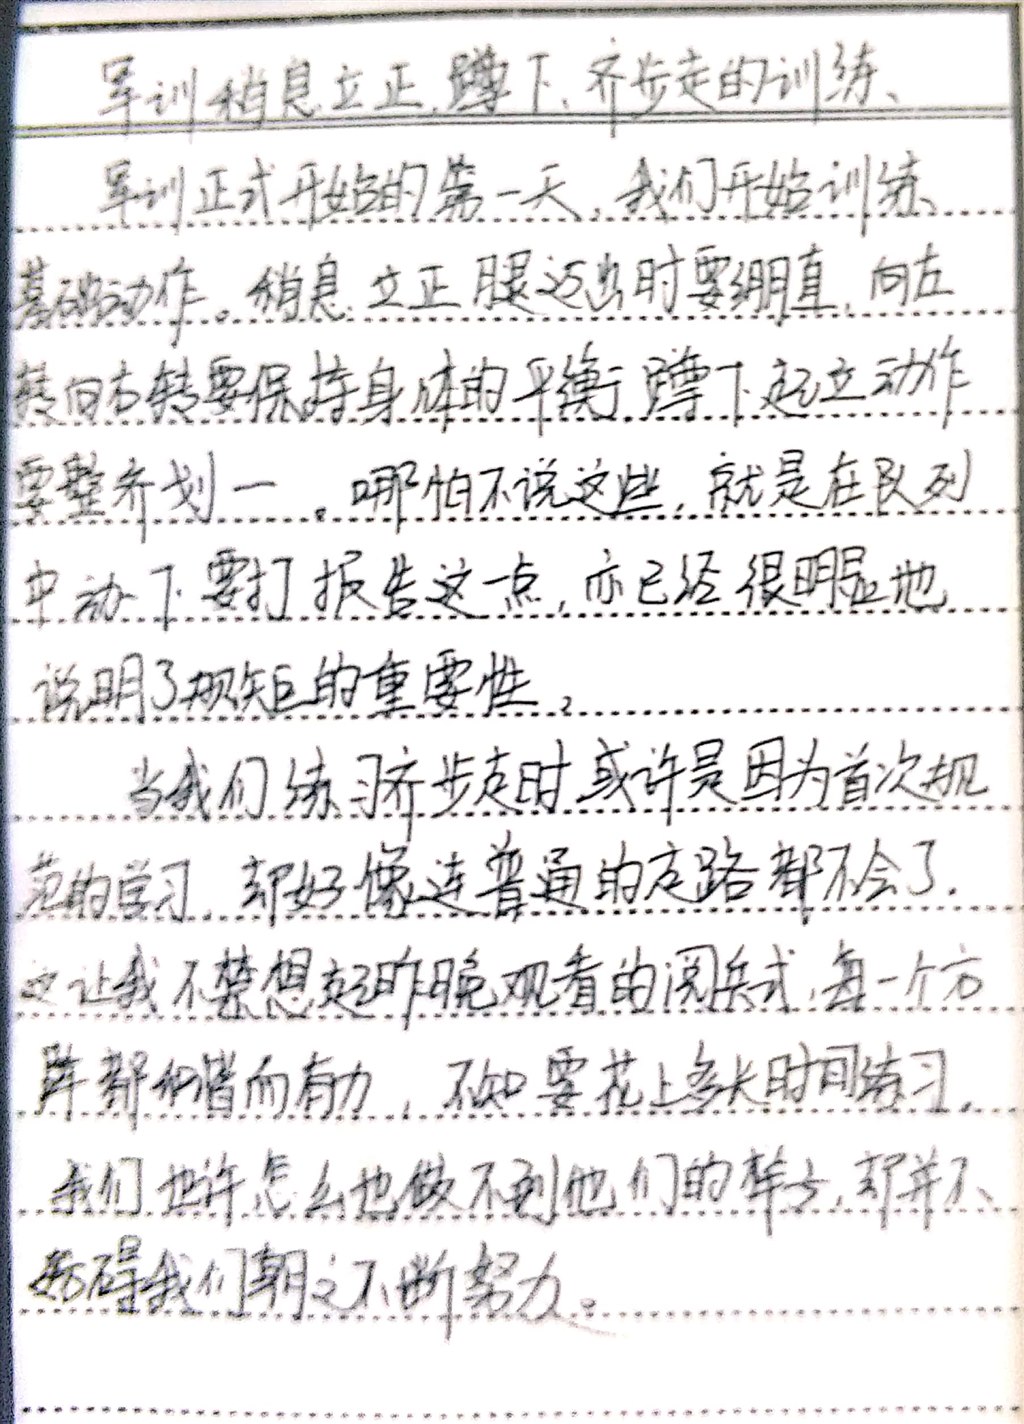 军训稍息立正、蹲下、齐步走的训练、
军训正式开始的第一天，我们开始训练
基础动作。稍息、立正腿迈出时要绷直，向左
转向右转要保持身体的平衡，蹲下起立动作
要整齐划一。哪怕不说这些，就是在队列
中动一下要打报告这一点，亦已经很明显地
说明了规矩的重要性。
当我们练习齐步走时，或许是因为首次规
范的学习，却好像连普通的走路都不会了。
这让我不禁想起昨晚观看的阅兵式，每一个方
阵都和谐而有力，不知要花上多长时间练习。
我们也许怎么也做不到他们的，却并不
妨碍我们朝之不断努力。